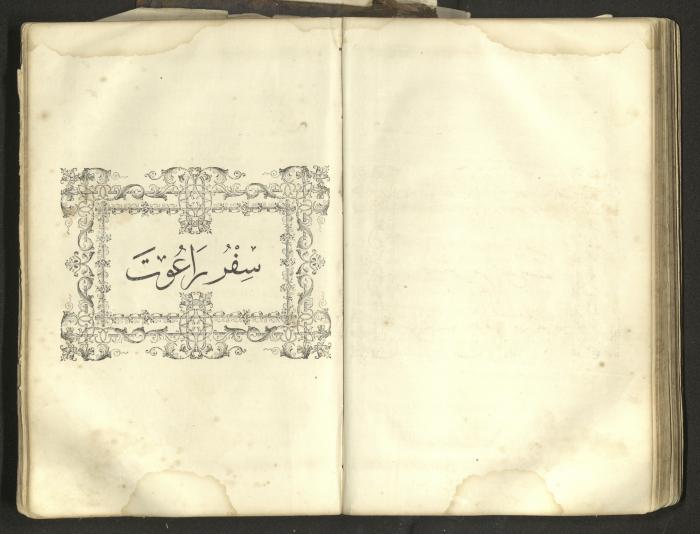 سِفْرُ رَاعُوثَ